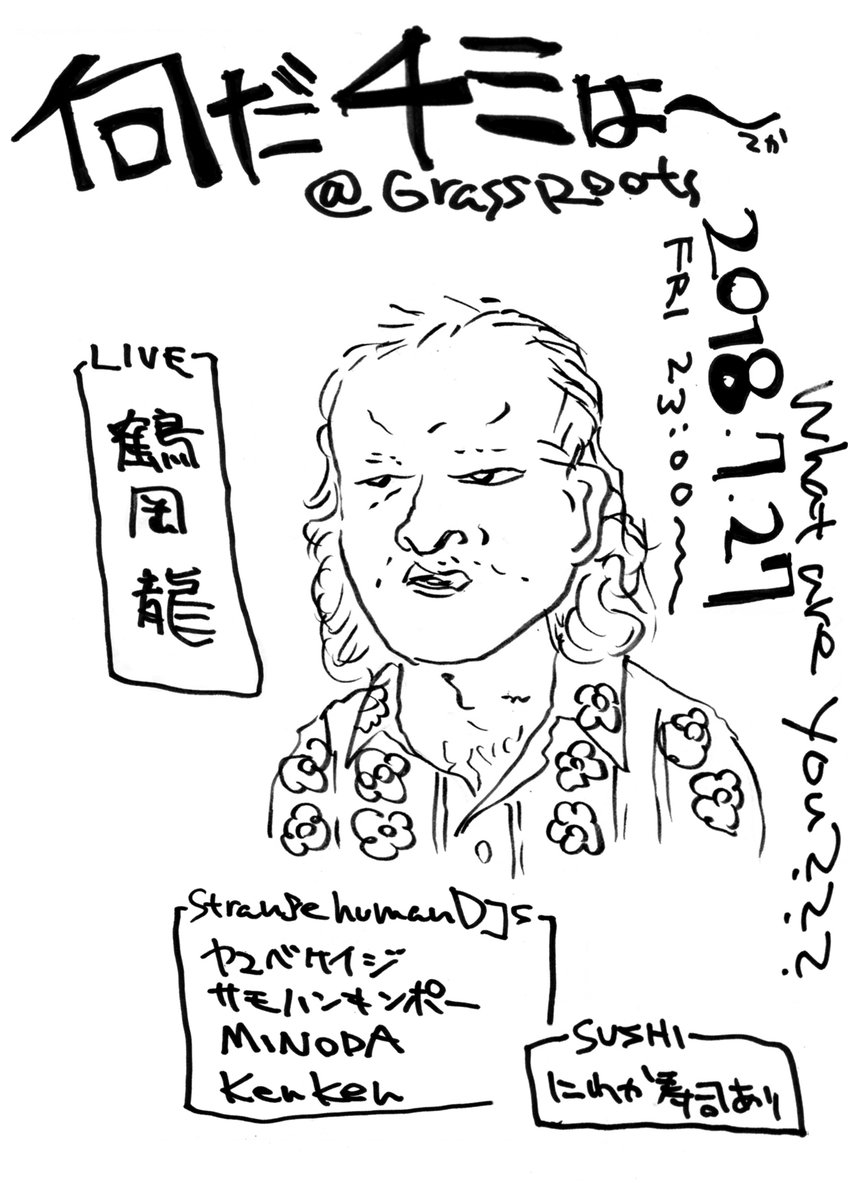 何だチミは〜
てか
@GrassRoots
2018.7.27
FRI 23:00〜
What are you???
LIVE
鶴岡龍
Strange human DJs
ヤマベケイジ
サモハンキンポー
MINODA
KenKen
SUSHI
にわか寿司あり